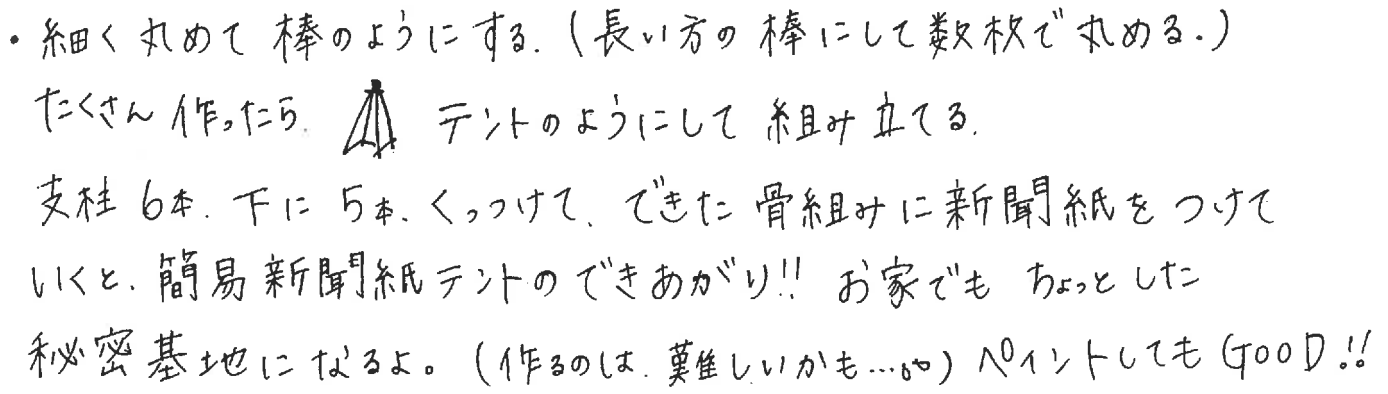 ・細く丸めて棒のようにする.(長い方の棒にして数枚で丸める.)
たくさん作ったら. テントのようにして組み立てる.
支柱6本.下に5本.くっつけて、できた骨組みに新聞紙をつけて
いくと.簡易新聞紙テントのできあがり!! お家でもちょっとした
秘密基地になるよ。(作るのは.難しいかも…) ペイントしてもGOOD!!